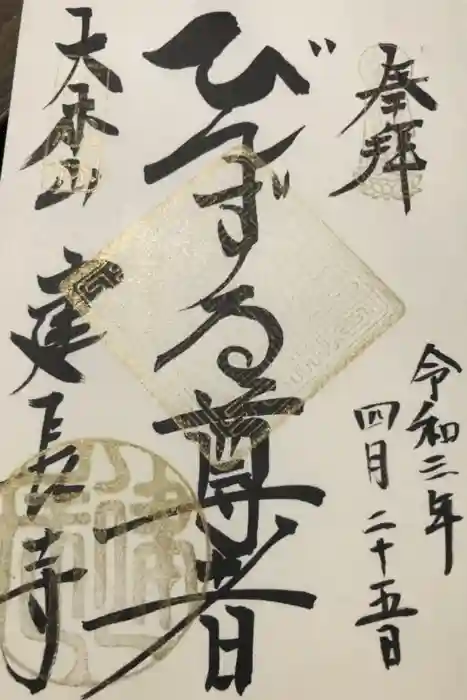 奉拝
令和三年
四月二十五日
びんずる尊者
天永山
建長寺